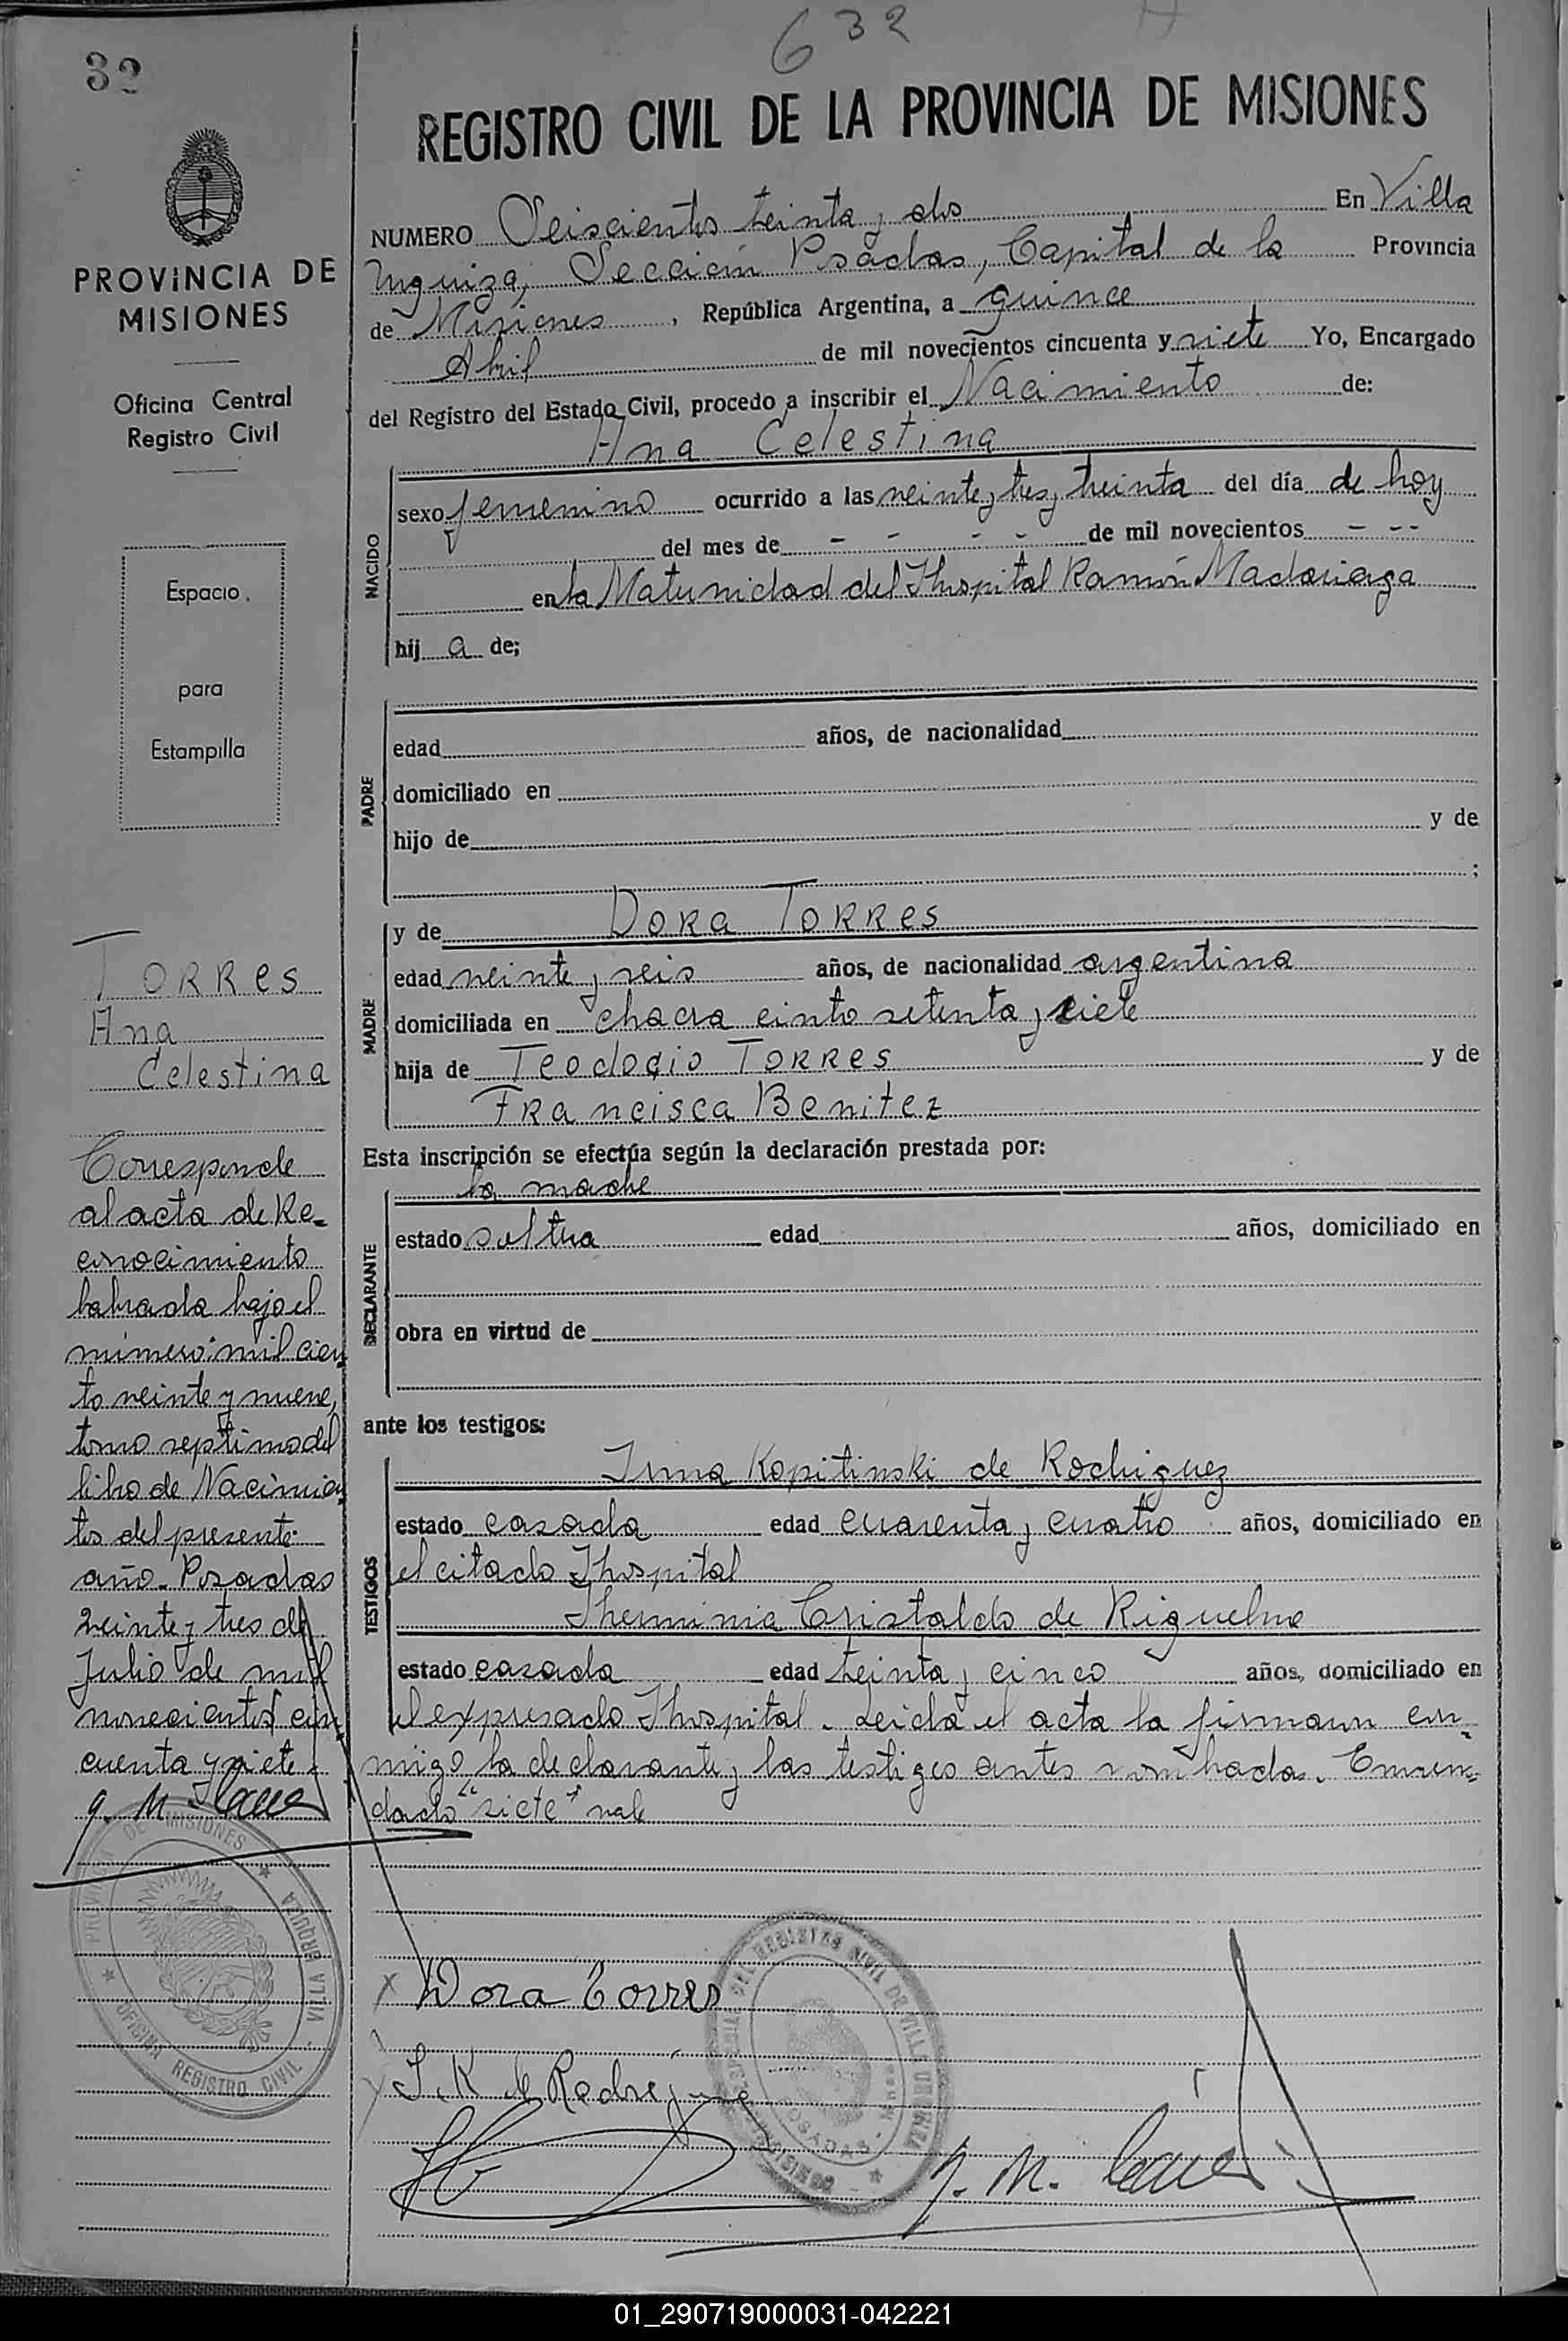 632
32
REGISTRO CIVIL DE LA PROVINCIA DE MISIONES
PROVINCIA DE
MISIONES
Oficina Central
Registro Civil
Espacio
para
Estampilla
TORRes
Ana
Celestina
Corresponde
al acta de Re-
conocimiento
labrada bajo el
número: mil cien
to veinte y nueve,
tomo septimo del
libro de Nacimien
tos del presente
año. Posadas
veinte y tres de
Julio de mil
novecientos cin
cuenta y siete
NUMERO Seiscientos treinta y dos En Villa
Urquiza, Sección Posadas, Capital de la Provincia
de Misiones, República Argentina, a quince
Abril de mil novecientos cincuenta y siete Yo, Encargado
del Registro del Estado Civil, procedo a inscribir el Nacimiento de:
Ana Celestina
NACIDO
sexo femenino ocurrido a las veinte y tres y treinta del día de hoy
del mes de - - - - de mil novecientos - - -
en la Maternidad del Hospital Ramón Madariaga
hij a de;
PADRE
edad años, de nacionalidad
domiciliado en
hijo de y de
;
MADRE
y de DORa TORRes
edad veinte y seis años, de nacionalidad argentina
domiciliada en chacra ciento setenta y siete
hija de Teodocio TORRes y de
FRancisca Benitez
Esta inscripción se efectúa según la declaración prestada por:
DECLARANTE
la madre
estado soltera edad años, domiciliado en
obra en virtud de
ante los testigos:
TESTIGOS
Irma Kopitinski de Rodriguez
estado casada edad cuarenta y cuatro años, domiciliado en
el citado Hospital
Herminia Cristaldo de Riquelme
estado casada edad treinta y cinco años, domiciliado en
el expresado Hospital. Leida el acta la firmaron con-
migo la declarante y las testigos antes nombradas. Enmen-
dado "siete" vale
Dora Torres
I. K de Rodriguez
PROVINCIA DE MISIONES
VILLA URQUIZA
OFICINA REGISTRO CIVIL
DEL REGISTRO CIVIL DE VILLA URQUIZA
POSADAS
MISIONES
01_290719000031-042221